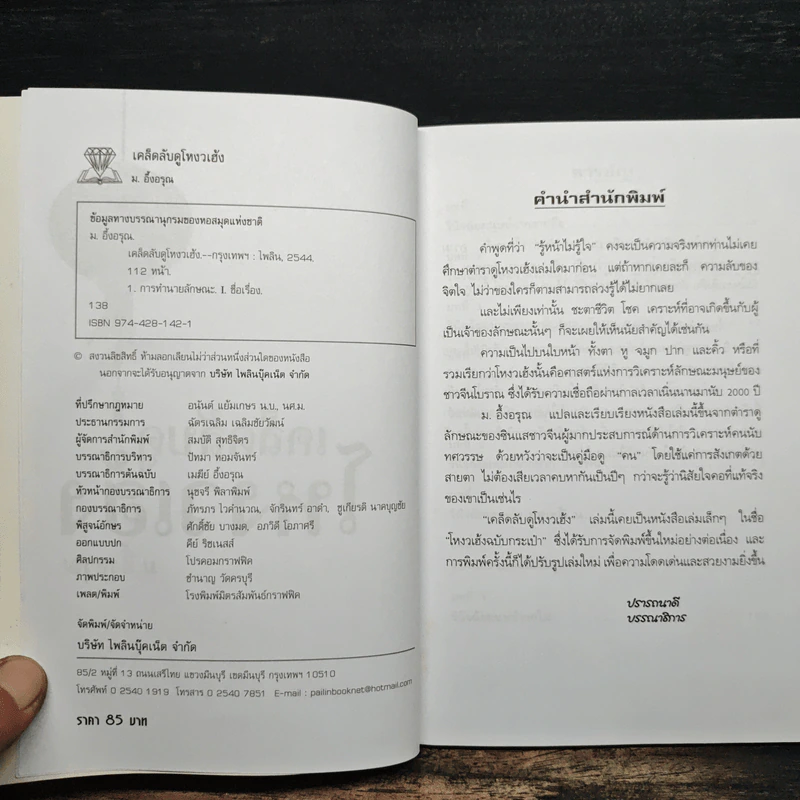 เคล็ดลับดูโหงวเฮ้ง
ม. อึ้งอรุณ
ข้อมูลทางบรรณานุกรมของหอสมุดแห่งชาติ
ม. อึ้งอรุณ.
เคล็ดลับดูโหงวเฮ้ง.--กรุงเทพฯ : ไพลิน, 2544.
112 หน้า.
1. การทำนายลักษณะ. I. ชื่อเรื่อง.
138
ISBN 974-428-142-1
© สงวนลิขสิทธิ์ ห้ามลอกเลียนไม่ว่าส่วนหนึ่งส่วนใดของหนังสือ
นอกจากจะได้รับอนุญาตจาก บริษัท ไพลินบุ๊คเน็ต จำกัด
ที่ปรึกษากฎหมาย อนันต์ แย้มเกษร น.บ., นศ.ม.
ประธานกรรมการ ฉัตรเฉลิม เฉลิมชัยวัฒน์
ผู้จัดการสำนักพิมพ์ สมบัติ สุทธิจิตร
บรรณาธิการบริหาร ปัทมา หอมจันทร์
บรรณาธิการต้นฉบับ เมฆีย์ อึ้งอรุณ
หัวหน้ากองบรรณาธิการ นุชจรี พิลาพิมพ์
กองบรรณาธิการ ภัทรภร ไวคำนวณ, จักรินทร์ อาดำ, ชูเกียรติ นาคบุญชัย
พิสูจน์อักษร ศักดิ์ชัย บางมด, อภวิดี โอภาศรี
ออกแบบปก คีย์ ริชเนสส์
ศิลปกรรม โปรคอมกราฟฟิค
ภาพประกอบ ชำนาญ วัดครบุรี
เพลต/พิมพ์ โรงพิมพ์มิตรสัมพันธ์กราฟฟิค
จัดพิมพ์/จัดจำหน่าย
บริษัท ไพลินบุ๊คเน็ต จำกัด
85/2 หมู่ที่ 13 ถนนเสรีไทย แขวงมีนบุรี เขตมีนบุรี กรุงเทพฯ 10510
โทรศัพท์ 0 2540 1919 โทรสาร 0 2540 7851 E-mail : pailinbooknet@hotmail.com
ราคา 85 บาท
คำนำสำนักพิมพ์
คำพูดที่ว่า "รู้หน้าไม่รู้ใจ" คงจะเป็นความจริงหากท่านไม่เคย
ศึกษาตำราดูโหงวเฮ้งเล่มใดมาก่อน แต่ถ้าหากเคยละก็ ความลับของ
จิตใจ ไม่ว่าของใครก็ตามสามารถล่วงรู้ได้ไม่ยากเลย
และไม่เพียงเท่านั้น ชะตาชีวิต โชค เคราะห์ที่อาจเกิดขึ้นกับผู้
เป็นเจ้าของลักษณะนั้นๆ ก็จะเผยให้เห็นนัยสำคัญได้เช่นกัน
ความเป็นไปบนใบหน้า ทั้งตา หู จมูก ปาก และคิ้ว หรือที่
รวมเรียกว่าโหงวเฮ้งนั้นคือศาสตร์แห่งการวิเคราะห์ลักษณะมนุษย์ของ
ชาวจีนโบราณ ซึ่งได้รับความเชื่อถือผ่านกาลเวลาเนิ่นนานมานับ 2000 ปี
ม. อึ้งอรุณ แปลและเรียบเรียงหนังสือเล่มนี้ขึ้นจากตำราดู
ลักษณะของซินแสชาวจีนผู้มากประสบการณ์ด้านการวิเคราะห์คนนับ
ทศวรรษ ด้วยหวังว่าจะเป็นคู่มือดู "คน" โดยใช้แค่การสังเกตด้วย
สายตา ไม่ต้องเสียเวลาคบหากันเป็นปีๆ กว่าจะรู้นิสัยใจคอที่แท้จริง
ของเขาเป็นเช่นไร
"เคล็ดลับดูโหงวเฮ้ง" เล่มนี้เคยเป็นหนังสือเล่มเล็กๆ ในชื่อ
"โหงวเฮ้งฉบับกระเป๋า" ซึ่งได้รับการจัดพิมพ์ขึ้นใหม่อย่างต่อเนื่อง และ
การพิมพ์ครั้งนี้ก็ได้ปรับรูปเล่มใหม่ เพื่อความโดดเด่นและสวยงามยิ่งขึ้น
ปรารถนาดี
บรรณาธิการ